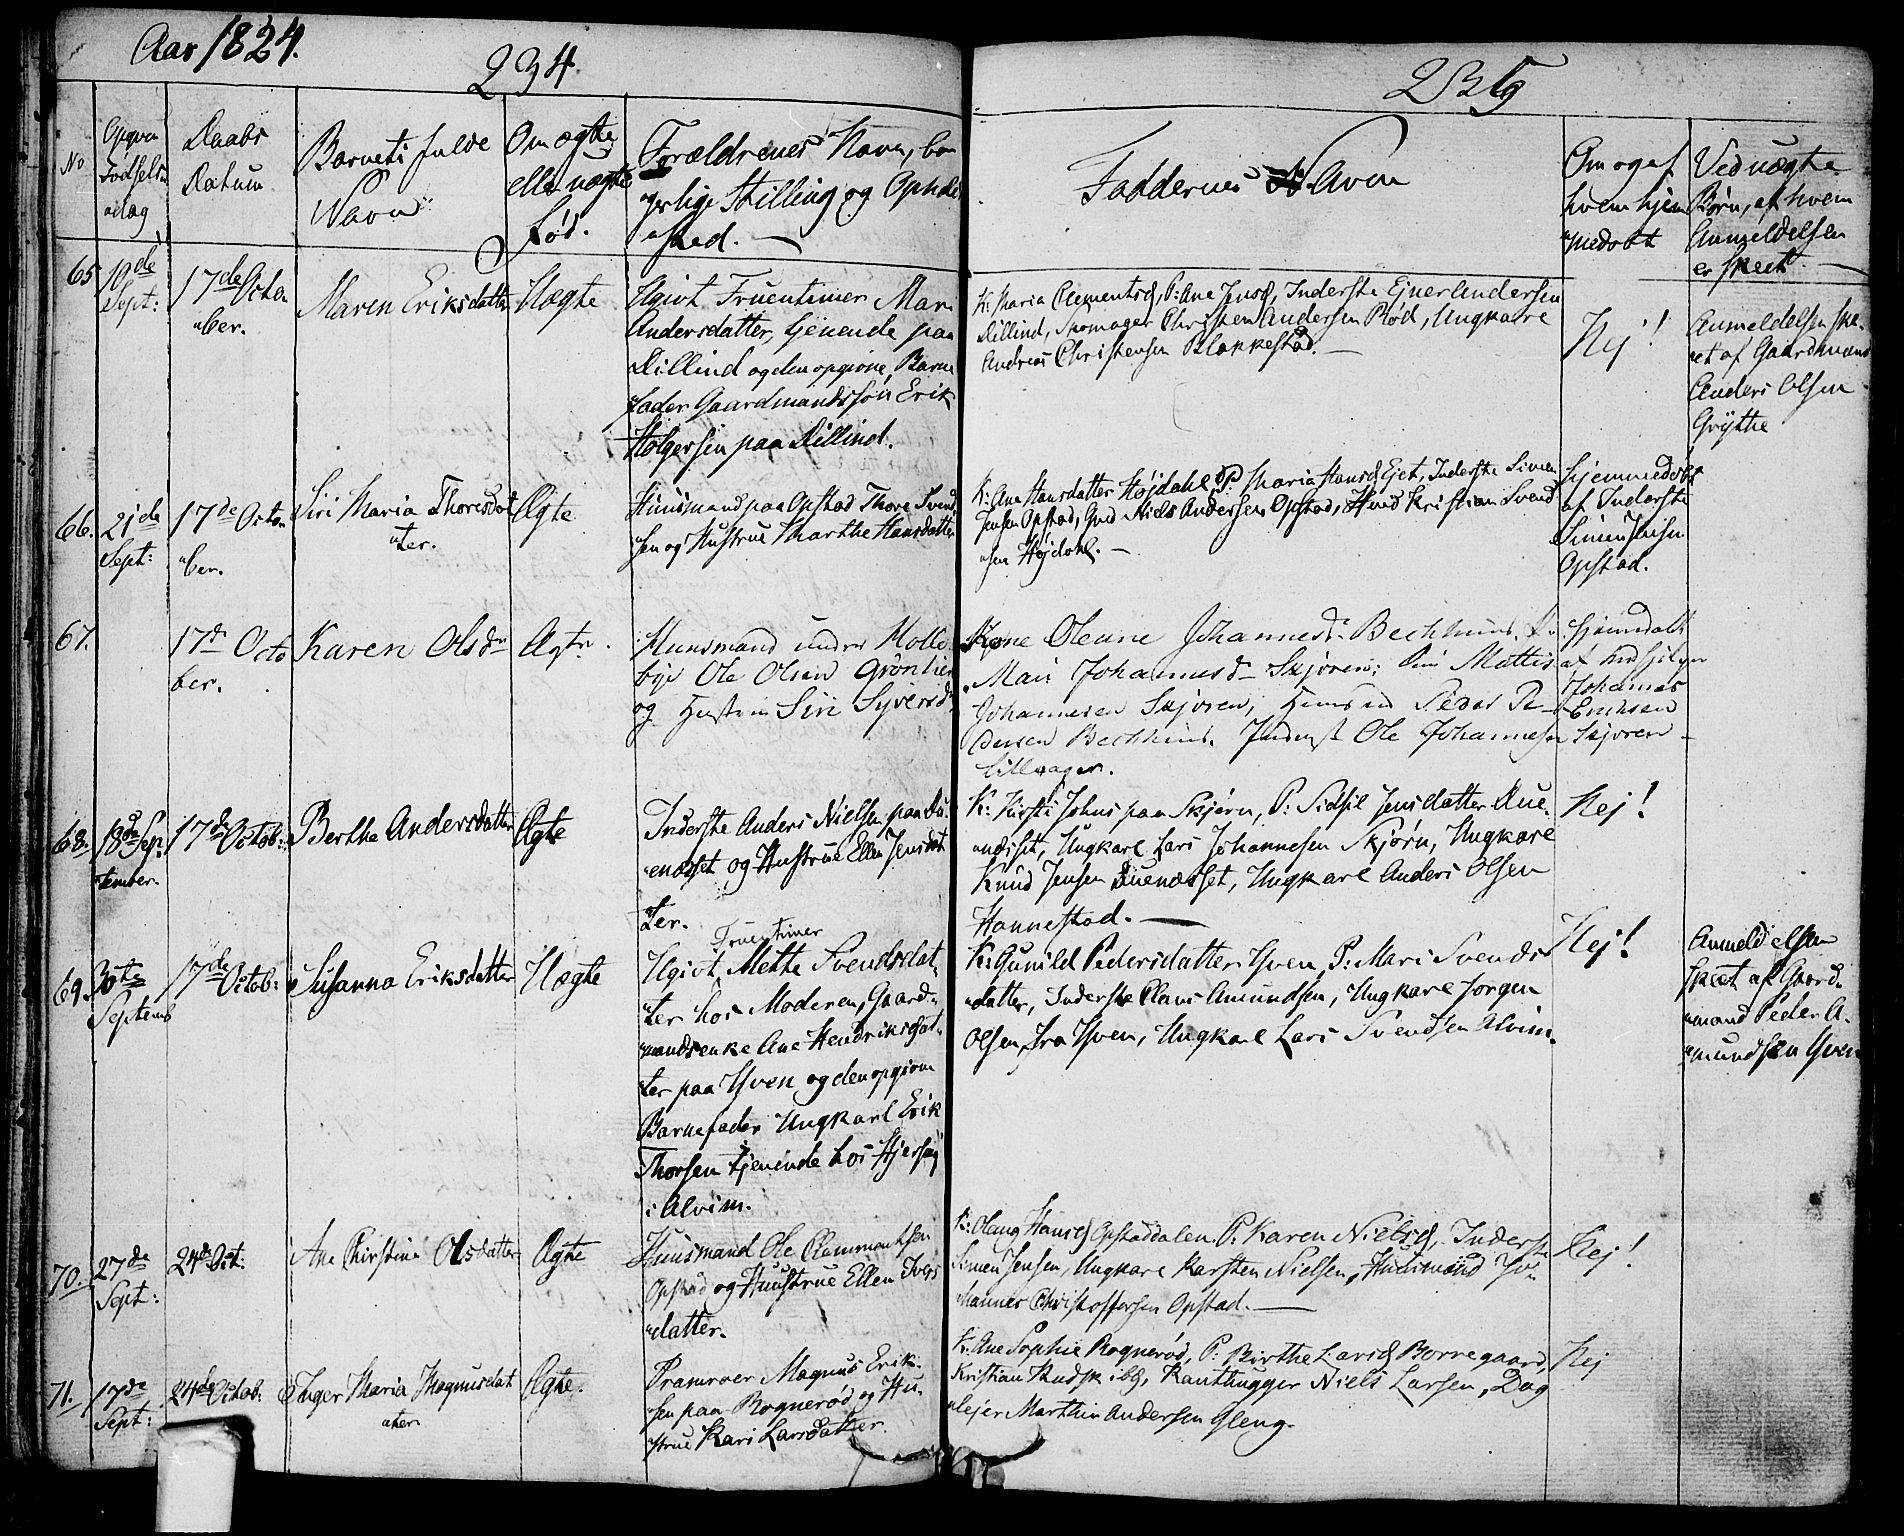 Aar 1824.
234
235
No
Opgiven
Fødsels
"dag
Daabs
Datum
Barnets fulde
Navn
Om ægte
eller uægte
fød.
Forældrenes Navn, bor
gerlige Stilling og Opholds
"sted. —
Faddernes Navn
Om og af
hvem hjem
"medøbt
Ved uægte
Børn, af hvem
Anmeldelsen
er skeet. —
65
19de
Sept:
17de Octo
"ber.
Maren Eriksdatter
Uægte
Ugivt Fruentimer Mari
Andersdatter, tjenende paa
Dillind og den opgivne Barne
fader Gaardmandssøn Erik
Holgersen paa Dillind.
K: Maria Clementsd, P: Ane Jensd, Inderste Ejner Andersen
Dillind, Skomager Christen Andersen Rød, Ungkarl
Andreas Christensen Blakkestad. —
Nej!
Anmeldelsen ske-
et af Gaardmand
Anders Olsen
Grythe
66.
21de
Sept:
17de Octo
"ber.
Siri Maria Thoresdat
"ter.
Ægte
Huusmand paa Opstad Thore Svend
"sen og Hustrue Marthe Hansdatter
K: Ane Hansdatter Højdahl, P: Maria Hansd Ejet, Inderste Simen
Jensen Opstad, Niels Andersen Opstad, Kristian Svend
"sen Højdahl. —
Hjemmedøbt
af Inderste
Simen Jensen
Opstad.
67.
17de Octo
ber.
Karen Olsdr
Ægte.
Huusmand under Holle
bye Ole Olsen Grønlien
og Hustru Siri Syversd.
Kone Oleane Johannesd. Bechhuus. P.
Mari Johannesd Skjøren; Mattis
Johannesen Skjøren, Peder Pe-
dersen Bechhuus. Inderst Ole Johannesen
Lilleager.
Hjemdøbt
af
Johannes
Erichsen
Skjøren
68.
18de Sep
"tember.
17de Octob:
Berthe Andersdatter
Ægte
Inderste Anders Nielsen paa Du
"enæsset og Hustrue Ellen Jensdat
"ter.
K: Kirsti Johns paa Skjørn, P: Sidsil Jensdatter Due-
næsset, Ungkarl Lars Johannesen Skjørn, Ungkarl
Knud Jensen Duenæsset, Ungkarl Anders Olsen
Hannestad. —
Nej!
69.
30te
Septemb
17de Octob:
Susanna Eriksdatter
Uægte
Fruentimer
Ugivt Mette Svendsdat-
"ter hos Moderen, Gaard-
"mandsenke Ane Hendriksdat-
"ter paa Yven og den opgivne
Barnefader Ungkarl Erik
Thorsen tjenende hos
i Alvim.
K: Gunild Pedersdatter Yven, P: Mari Svends
"datter, Inderste Claus Amundsen, Ungkarl Jørgen
Olsen fra Yven, Ungkarl Lars Svendsen Alvim.
Nej!
Anmeldelsen
skeet af Gaard-
"mand Peder A-
"mundsen Yven
70.
27de
Sept:
24de Oct:
Ane Christine Olsdatter
Ægte
Huusmand Ole Clammentsen
Opstad og Huustrue Ellen Ivers
"datter.
K: Olaug Hansd Opstaddalen. P: Karen Nielsd, Inderste
Simen Jensen, Ungkarl Karsten Nielsen, Huusmand
Christoffersen Opstad. —
Nej!
71.
17de
Sept:
24de Octob.
Inger Maria Magnusdat
"ter
Ægte.
Pramroer Magnus Erik-
sen paa Rognerød og Hu-
"strue Kari Larsdatter.
K: Ane Sophie Rognerød, P: Birthe Larsd Borregaard,
Kristian Niels Larsen, Dag
"lejer Marthin Andersen Gleng.
Nej